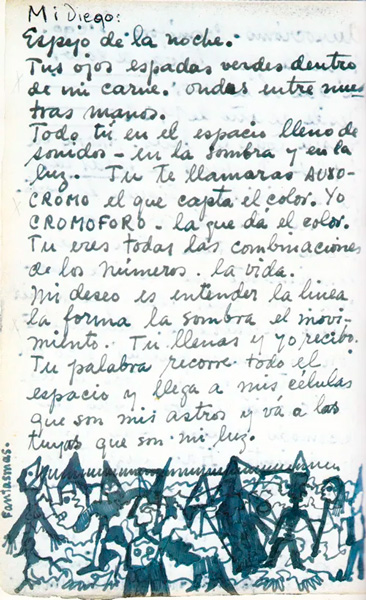 Mi Diego:
Espejo de la noche.
Tus ojos espadas verdes dentro
de mi carne. ondas entre nues
tras manos.
Todo tú en el espacio lleno de
sonidos - en la sombra y en la
luz. Tu te llamarás AUXO-
CROMO el que capta el color. Yo
CROMOFORO - la que dá el color.
Tu eres todas las combinaciones
de los números. la vida.
Mi deseo es entender la linea
la forma la sombra el movi-
miento. Tu llenas y yo recibo.
Tu palabra recorre todo el
espacio y llega a mis células
que son mis astros y vá á las
tuyas que son mi luz.
Fantasmas.